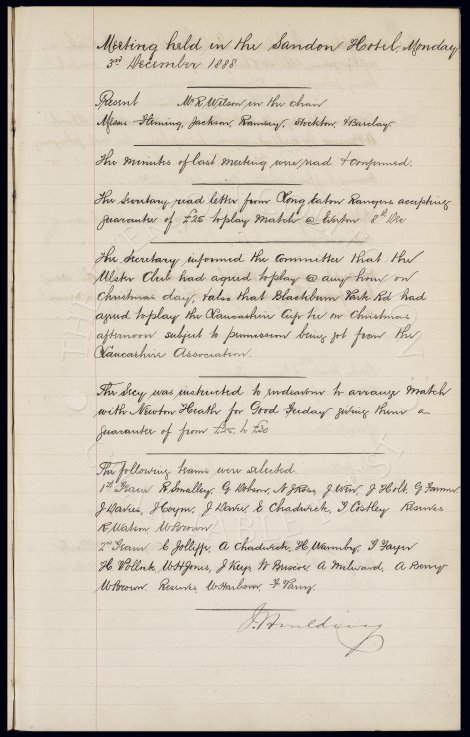 Meeting held in the Sandon Hotel, Monday
3rd December 1888
Present Mr R. Wilson, in the chair
Messrs Fleming, Jackson, Ramsey, Stockton, & Barclay
The minutes of last meeting were read & confirmed.
The Secretary read letter from Long Eaton Rangers accepting
guarantee of £25 to play match @ Everton 8th Dec
The Secretary informed the Committee that the
Ulster Club had agreed to play @ any hour on
Christmas day, & also that Blackburn Park Rd had
agreed to play the Lancashire Cup tie on Christmas
afternoon subject to permission being got from the
Lancashire Association.
The Secy was instructed to endeavour to arrange Match
with Newton Heath for Good Friday giving them a
guarantee of from £25 to £30
The following teams were selected
1st Team R. Smalley, G Dobson, A J Ross, J Weir, J Holt, G Farmer
J Davies, J Coyne, J Davie, E Chadwick, J Costley Reserves
R. Watson W Brown
2nd Team C Jolliffe, A Chadwick, H Warmby,
H Pollock, W H Jones, J Keys, W Briscoe, A Milward, A Berry
W Brown Reserves W Harbour, F Parry.